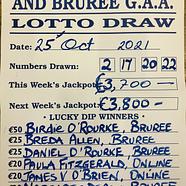 AND BRUREE G.A.A.
LOTTO DRAW
Date: 25 Oct 2021
Numbers Drawn: 2 17 20 22
This Week's Jackpot: €3,700 —
Next Week's Jackpot: €3,800 —
• LUCKY DIP WINNERS •
€50 BIRDIE O'ROURKE, BRUREE
€25 BREDA ALLEN, BRUREE
€25 DANIEL O'ROURKE, BRUREE
€20 PAULA FITZGERALD, ONLINE
€20 JAMES V O'BRIEN, ONLINE